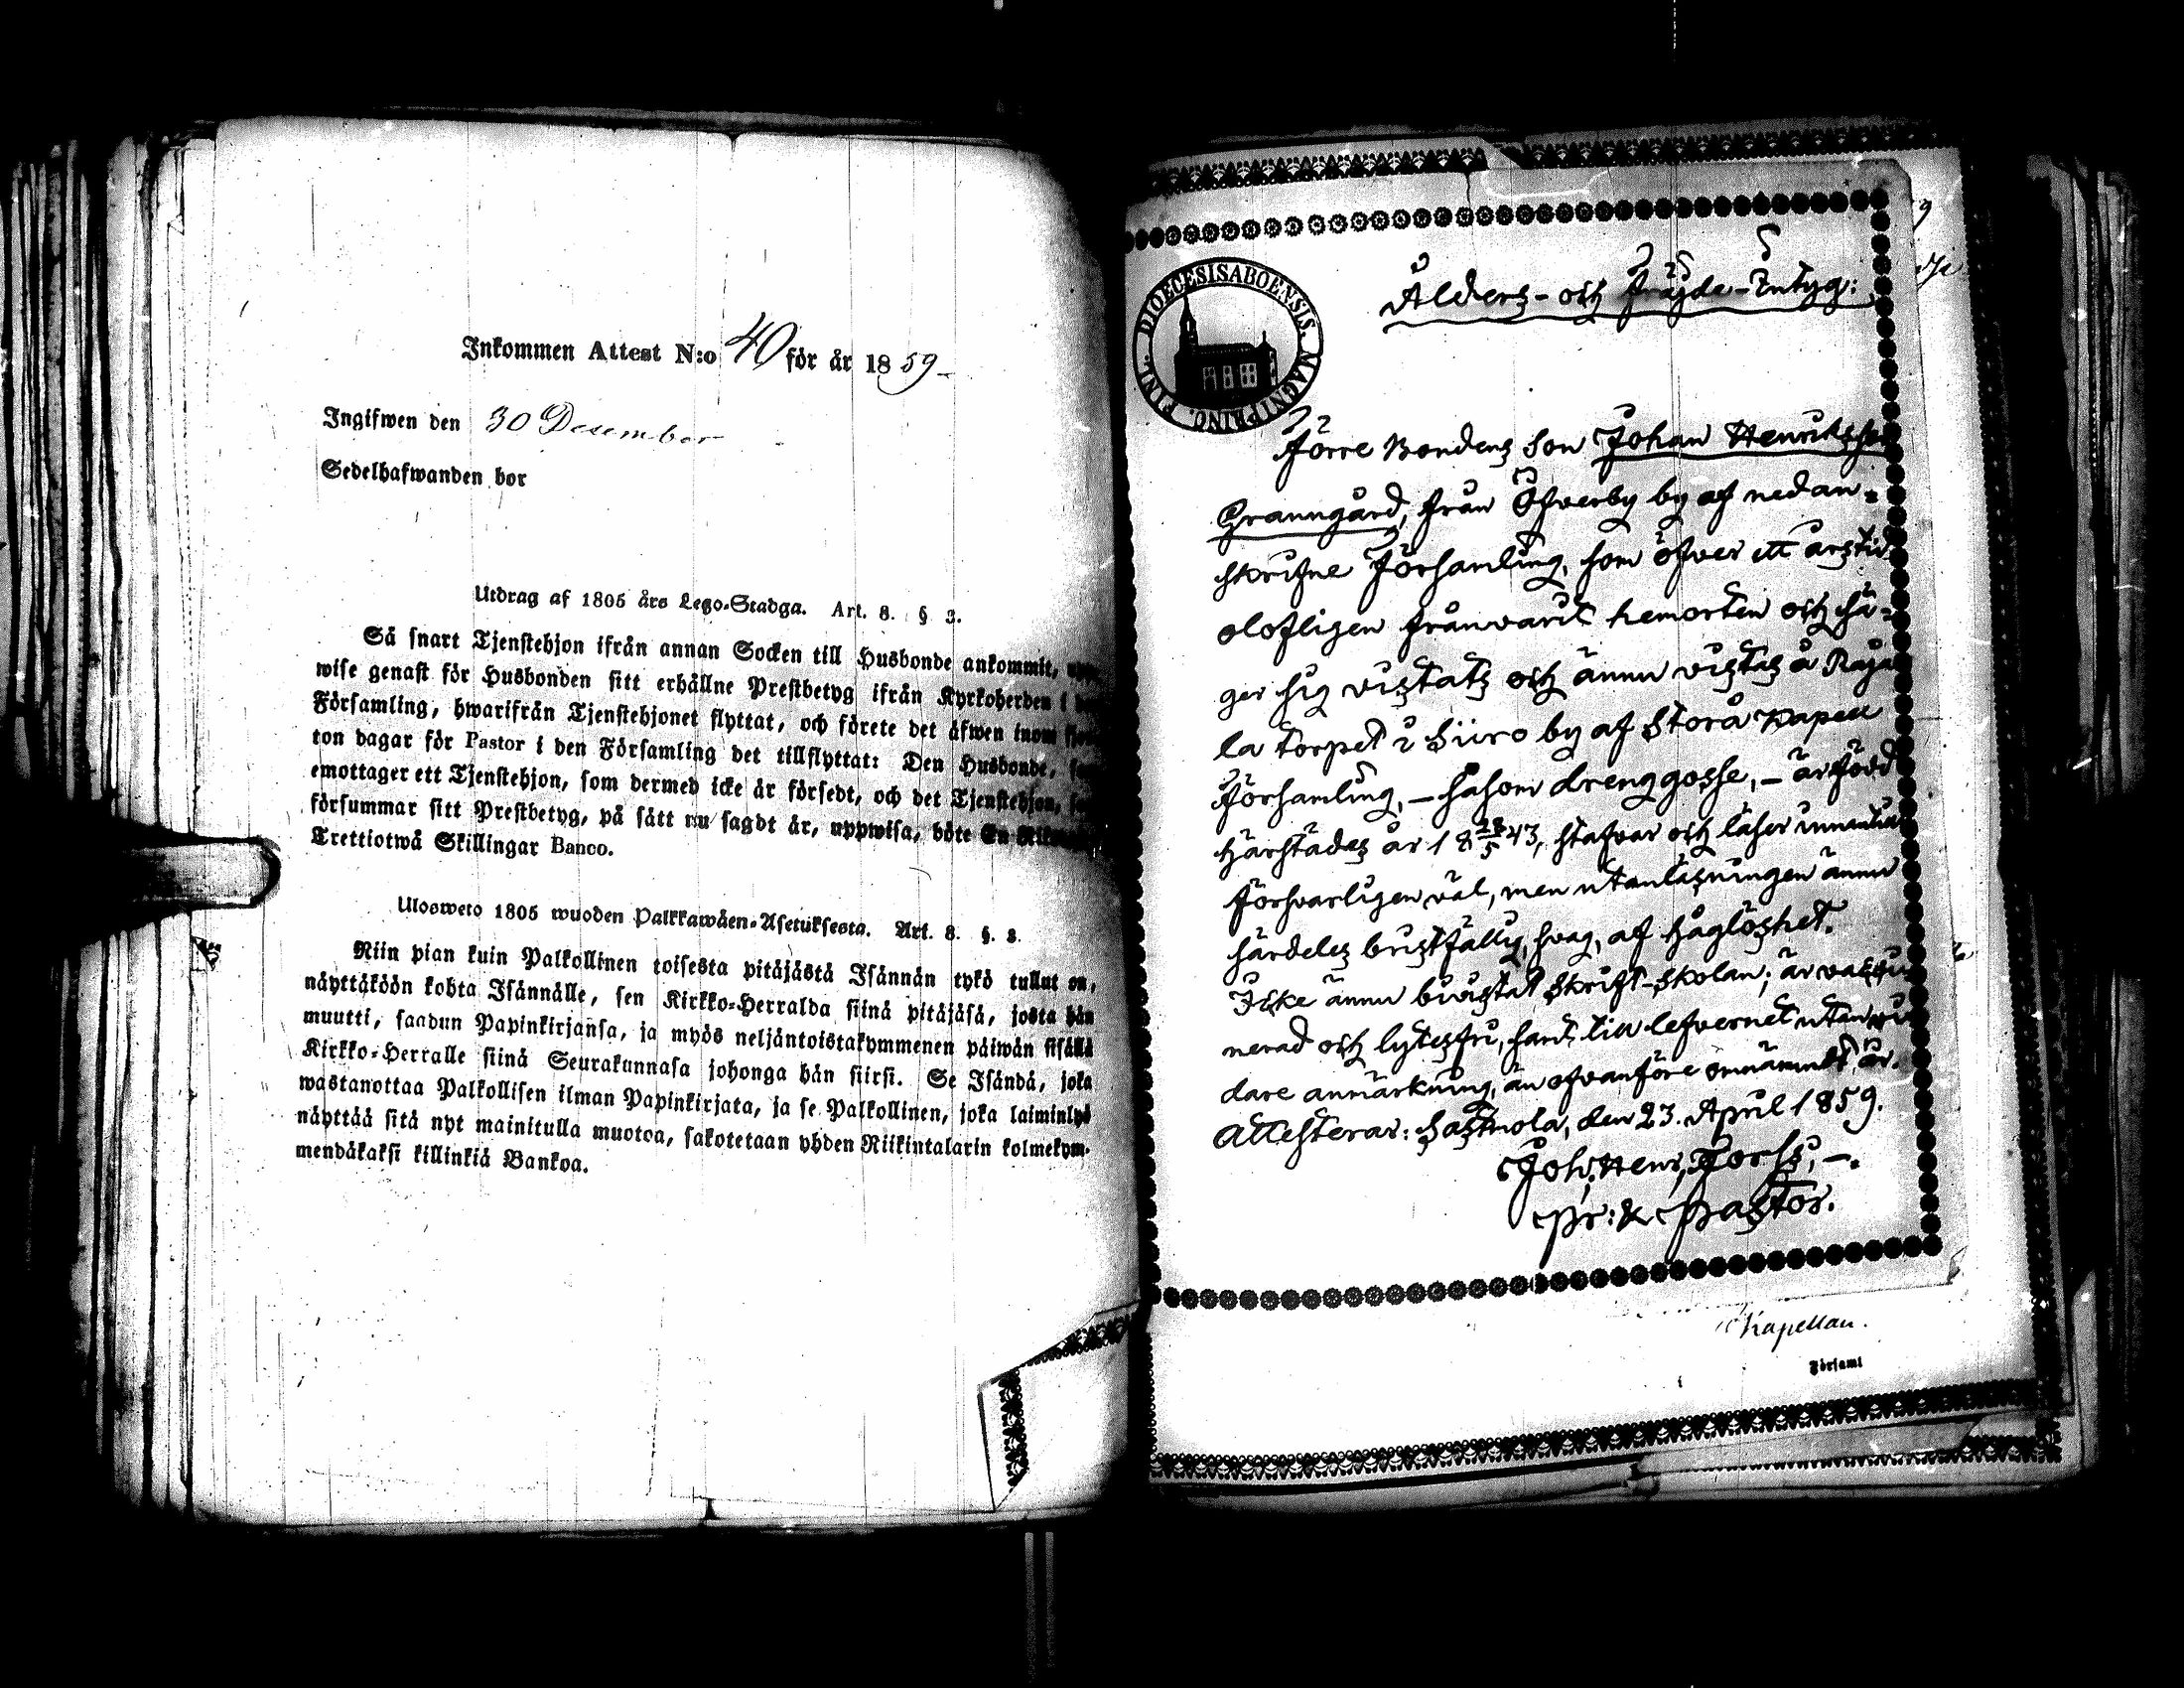 Inkommen Attest N:o 40 för år 1859
Ingifwen den 30 Desember
Sedelhafwanden bor
Utdrag af 1805 års Lego-Stadga. Art. 8. § 3.
Så snart Tjenstehjon ifrån annan Socken till Husbonde ankommit,
wise genast för Husbonden sitt erhållne Prestbetyg ifrån Kyrkoherden i
Församling, hwarifrån Tjenstehjonet flyttat, och förete det äfwen inom
ton dagar för Pastor i den Församling det tillflyttat: Den Husbonde,
emottager ett Tjenstehjon, som dermed icke är försedt, och det Tjenstehjon,
försummar sitt Prestbetyg, på sätt nu sagdt är, uppwisa, böte En
Trettiotwå Skillingar Banco.
Ulosweto 1805 wuoden Palkkawäen-Asetuksesta. Art. 8. §. 3.
Niin pian kuin Palkollinen toisesta pitäjästä Isännän tykö tullut on,
näyttäköön kohta Isännälle, sen Kirkko-Herralda siinä pitäjäsä, josta hän
muutti, saadun Papinkirjansa, ja myös neljäntoistakymmenen päiwän sisällä
Kirkko-Herralle siinä Seurakunnasa johonga hän siirsi. Se Isändä, joka
wastanottaa Palkollisen ilman Papinkirjata, ja se Palkollinen, joka laiminlyö
näyttää sitä nyt mainitulla muotoa, sakotetaan yhden Riikintalarin kolmekym-
mendäkaksi killinkiä Bankoa.
DIOECESISABOENSIS. MAGNIPRINC. FINL.
Ålders- och Fräjde-Intyg:
Förre Bondens Son Johan Henriksson
Granngård, från Öfverby by af nedan-
skrifne Församling, som öfver ett årstid
olofligen frånvarit hemorten och sä-
ger sig vistats och ännu vistas å Raja
la torpet i Siiro by af Storå Kapell
Församling, – såsom drenggosse, – är född
härstädes år 18 28/5 43, stafvar och läser innantill
försvarligen väl, men utanläsningen ännu
särdeles bristfällig, svag, af håglöshet.
Icke ännu bivistat Skrift-skolan; är
nerad och lytesfri, samt till lefvernet utan vi
dare anmärkning, än ofvanföre omnämndt är.
Attesterar: Sastmola, den 23. April 1859.
Joh: Henr: Forss, –.
Pr: & Pastor.
Kapellan.
Församl